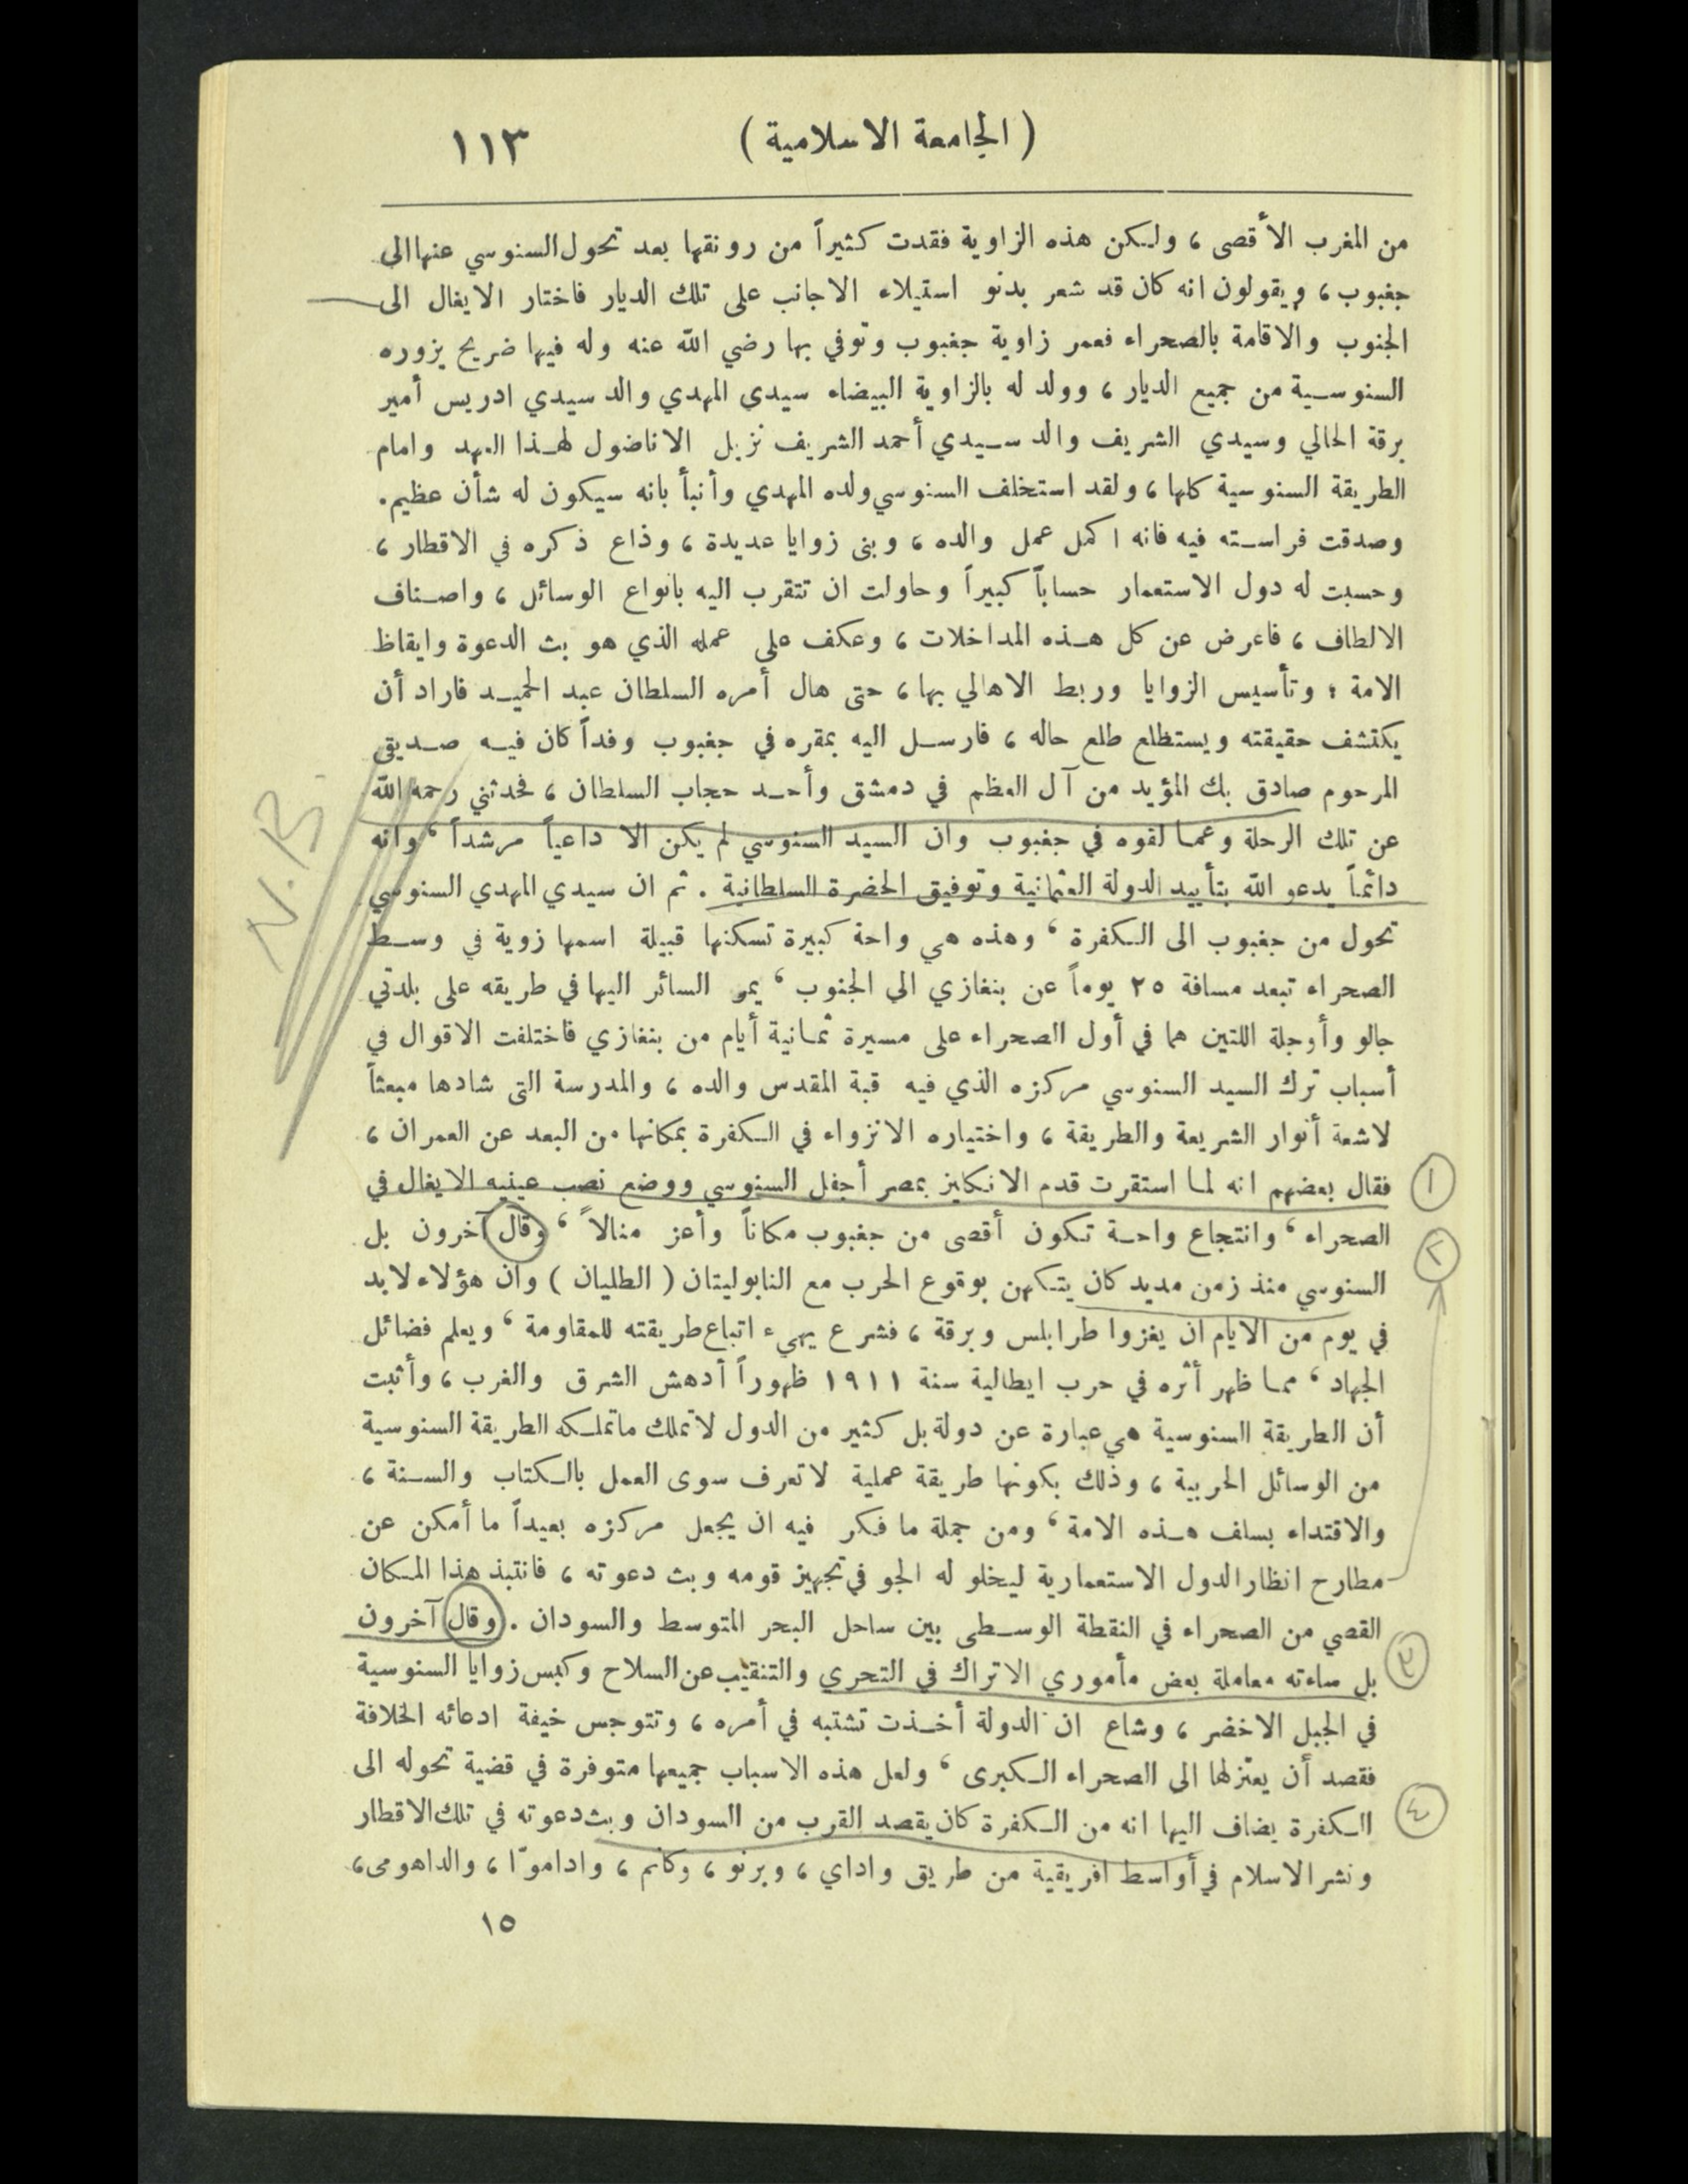 ( الجامعة الاسلامية ) ١١٣
من المغرب الأقصى ، ولكن هذه الزاوية فقدت كثيراً من رونقها بعد تحول السنوسي عنها الى
جغبوب ، ويقولون انه كان قد شعر بدنو استيلاء الاجانب على تلك الديار فاختار الايغال الى
الجنوب والاقامة بالصحراء فعمر زاوية جغبوب وتوفي بها رضي الله عنه وله فيها ضريح يزوره
السنوسية من جميع الديار ، وولد له بالزاوية البيضاء سيدي المهدي والد سيدي ادريس أمير
برقة الحالي وسيدي الشريف والد سيدي أحمد الشريف نزيل الاناضول لهذا العهد وامام
الطريقة السنوسية كلها ، ولقد استخلف السنوسي ولده المهدي وأنبأ بانه سيكون له شأن عظيم .
وصدقت فراسته فيه فانه اكمل عمل والده ، وبنى زوايا عديدة ، وذاع ذكره في الاقطار ،
وحسبت له دول الاستعمار حساباً كبيراً وحاولت ان تتقرب اليه بانواع الوسائل ، واصناف
الالطاف ، فاعرض عن كل هذه المداخلات ، وعكف على عمله الذي هو بث الدعوة وايقاظ
الامة ؛ وتأسيس الزوايا وربط الاهالي بها ، حتى هال أمره السلطان عبد الحميد فاراد أن
يكتشف حقيقته ويستطلع طلع حاله ، فارسل اليه بمقره في جغبوب وفداً كان فيه صديقي
المرحوم صادق بك المؤيد من آل العظم في دمشق وأحد حجاب السلطان ، فحدثني رحمه الله
N.B.
عن تلك الرحلة وعما لقوه في جغبوب وان السيد السنوسي لم يكن الا داعياً مرشداً ، وانه
دائماً يدعو الله بتأييد الدولة العثمانية وتوفيق الحضرة السلطانية . ثم ان سيدي المهدي السنوسي
تحول من جغبوب الى الكفرة ، وهذه هي واحة كبيرة تسكنها قبيلة اسمها زوية في وسط
الصحراء تبعد مسافة ٢٥ يوماً عن بنغازي الى الجنوب ، يمر السائر اليها في طريقه على بلدتي
جالو وأوجلة اللتين هما في أول الصحراء على مسيرة ثمانية أيام من بنغازي فاختلفت الاقوال في
أسباب ترك السيد السنوسي مركزه الذي فيه قبة المقدس والده ، والمدرسة التي شادها مبعثاً
لاشعة أنوار الشريعة والطريقة ، واختياره الانزواء في الكفرة بمكانها من البعد عن العمران ،
١ فقال بعضهم انه لما استقرت قدم الانكليز بمصر أجفل السنوسي ووضع نصب عينيه الايغال في
٢ الصحراء ، وانتجاع واحة تكون أقصى من جغبوب مكاناً وأعز منالاً ، وقال آخرون بل
السنوسي منذ زمن مديد كان يتكهن بوقوع الحرب مع النابوليتان ( الطليان ) وان هؤلاء لابد
في يوم من الايام ان يغزوا طرابلس وبرقة ، فشرع يهيء اتباع طريقته للمقاومة ، ويعلم فضائل
الجهاد ، مما ظهر أثره في حرب ايطالية سنة ١٩١١ ظهوراً أدهش الشرق والغرب ، وأثبت
أن الطريقة السنوسية هي عبارة عن دولة بل كثير من الدول لا تملك ماتملكه الطريقة السنوسية
من الوسائل الحربية ، وذلك بكونها طريقة عملية لا تعرف سوى العمل بالكتاب والسنة ،
والاقتداء بسلف هذه الامة ، ومن جملة ما فكر فيه ان يجعل مركزه بعيداً ما أمكن عن
مطارح انظار الدول الاستعمارية ليخلو له الجو في تجهيز قومه وبث دعوته ، فانتبذ هذا المكان
القصي من الصحراء في النقطة الوسطى بين ساحل البحر المتوسط والسودان . وقال آخرون
٣ بل ساءته معاملة بعض مأموري الاتراك في التحري والتنقيب عن السلاح وكبس زوايا السنوسية
في الجبل الاخضر ، وشاع ان الدولة أخذت تشتبه في أمره ، وتتوجس خيفة ادعائه الخلافة
فقصد أن يعتزلها الى الصحراء الكبرى ، ولعل هذه الاسباب جميعها متوفرة في قضية تحوله الى
٤ الكفرة يضاف اليها انه من الكفرة كان يقصد القرب من السودان وبث دعوته في تلك الاقطار
ونشر الاسلام في أواسط افريقية من طريق واداي ، وبرنو ، وكانم ، واداموّا ، والداهومى ،
١٥